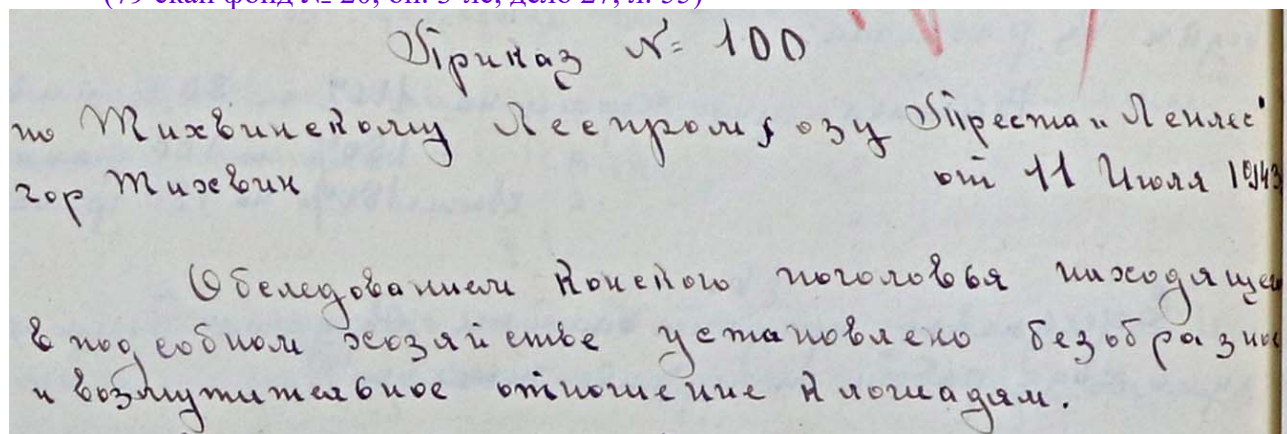 (79 скан фонд № 20, оп. 3 лс, дело 27, л. 35)
Приказ № 100
по Тихвинскому Леспромхозу Треста „Ленлес"
гор Тихвин от 11 Июля 1943
Обследованием Конского поголовья находящее
в подсобном хозяйстве установлено безобразное
и возмутительное отношение к лошадям.